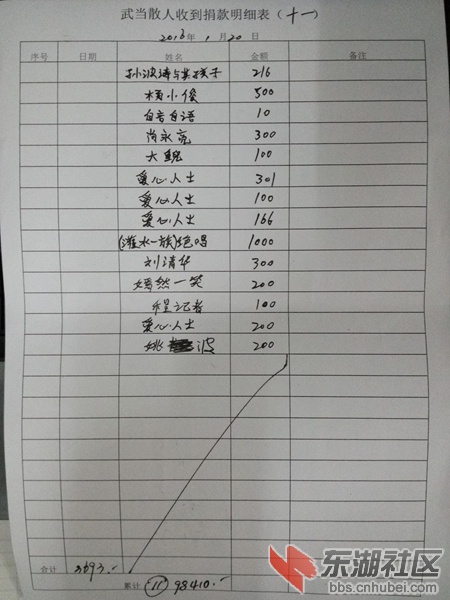 武当散人收到捐款明细表（十一）
2016年1月20日
序号 日期 金额 备注
孙波涛与其孩子 216
杨小俊 500
自言自语 10
肖永亮 300
大 100
爱心人士 301
爱心人士 100
爱心人士 166
(灌水一族)绝唱 1000
刘清华 300
嫣然一笑 200
程记者 100
爱心人士 200
姚 波 200
合计 3693.-
累计 (11) 98410.-
东湖社区
bbs.cnhubei.com